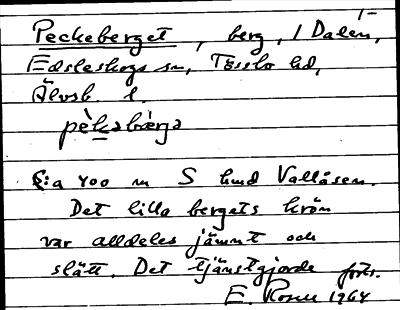 Peckeberget, berg, / Dalen,
Edsleskogs sn, Tössbo hd,
Älvsb. l.
pèkabærja
C:a 400 m S hmd Vallåsen.
Det lilla bergets krön
var alldeles jämnt och
slätt. Det tjänstgjorde forts.
E. Rosell 1964